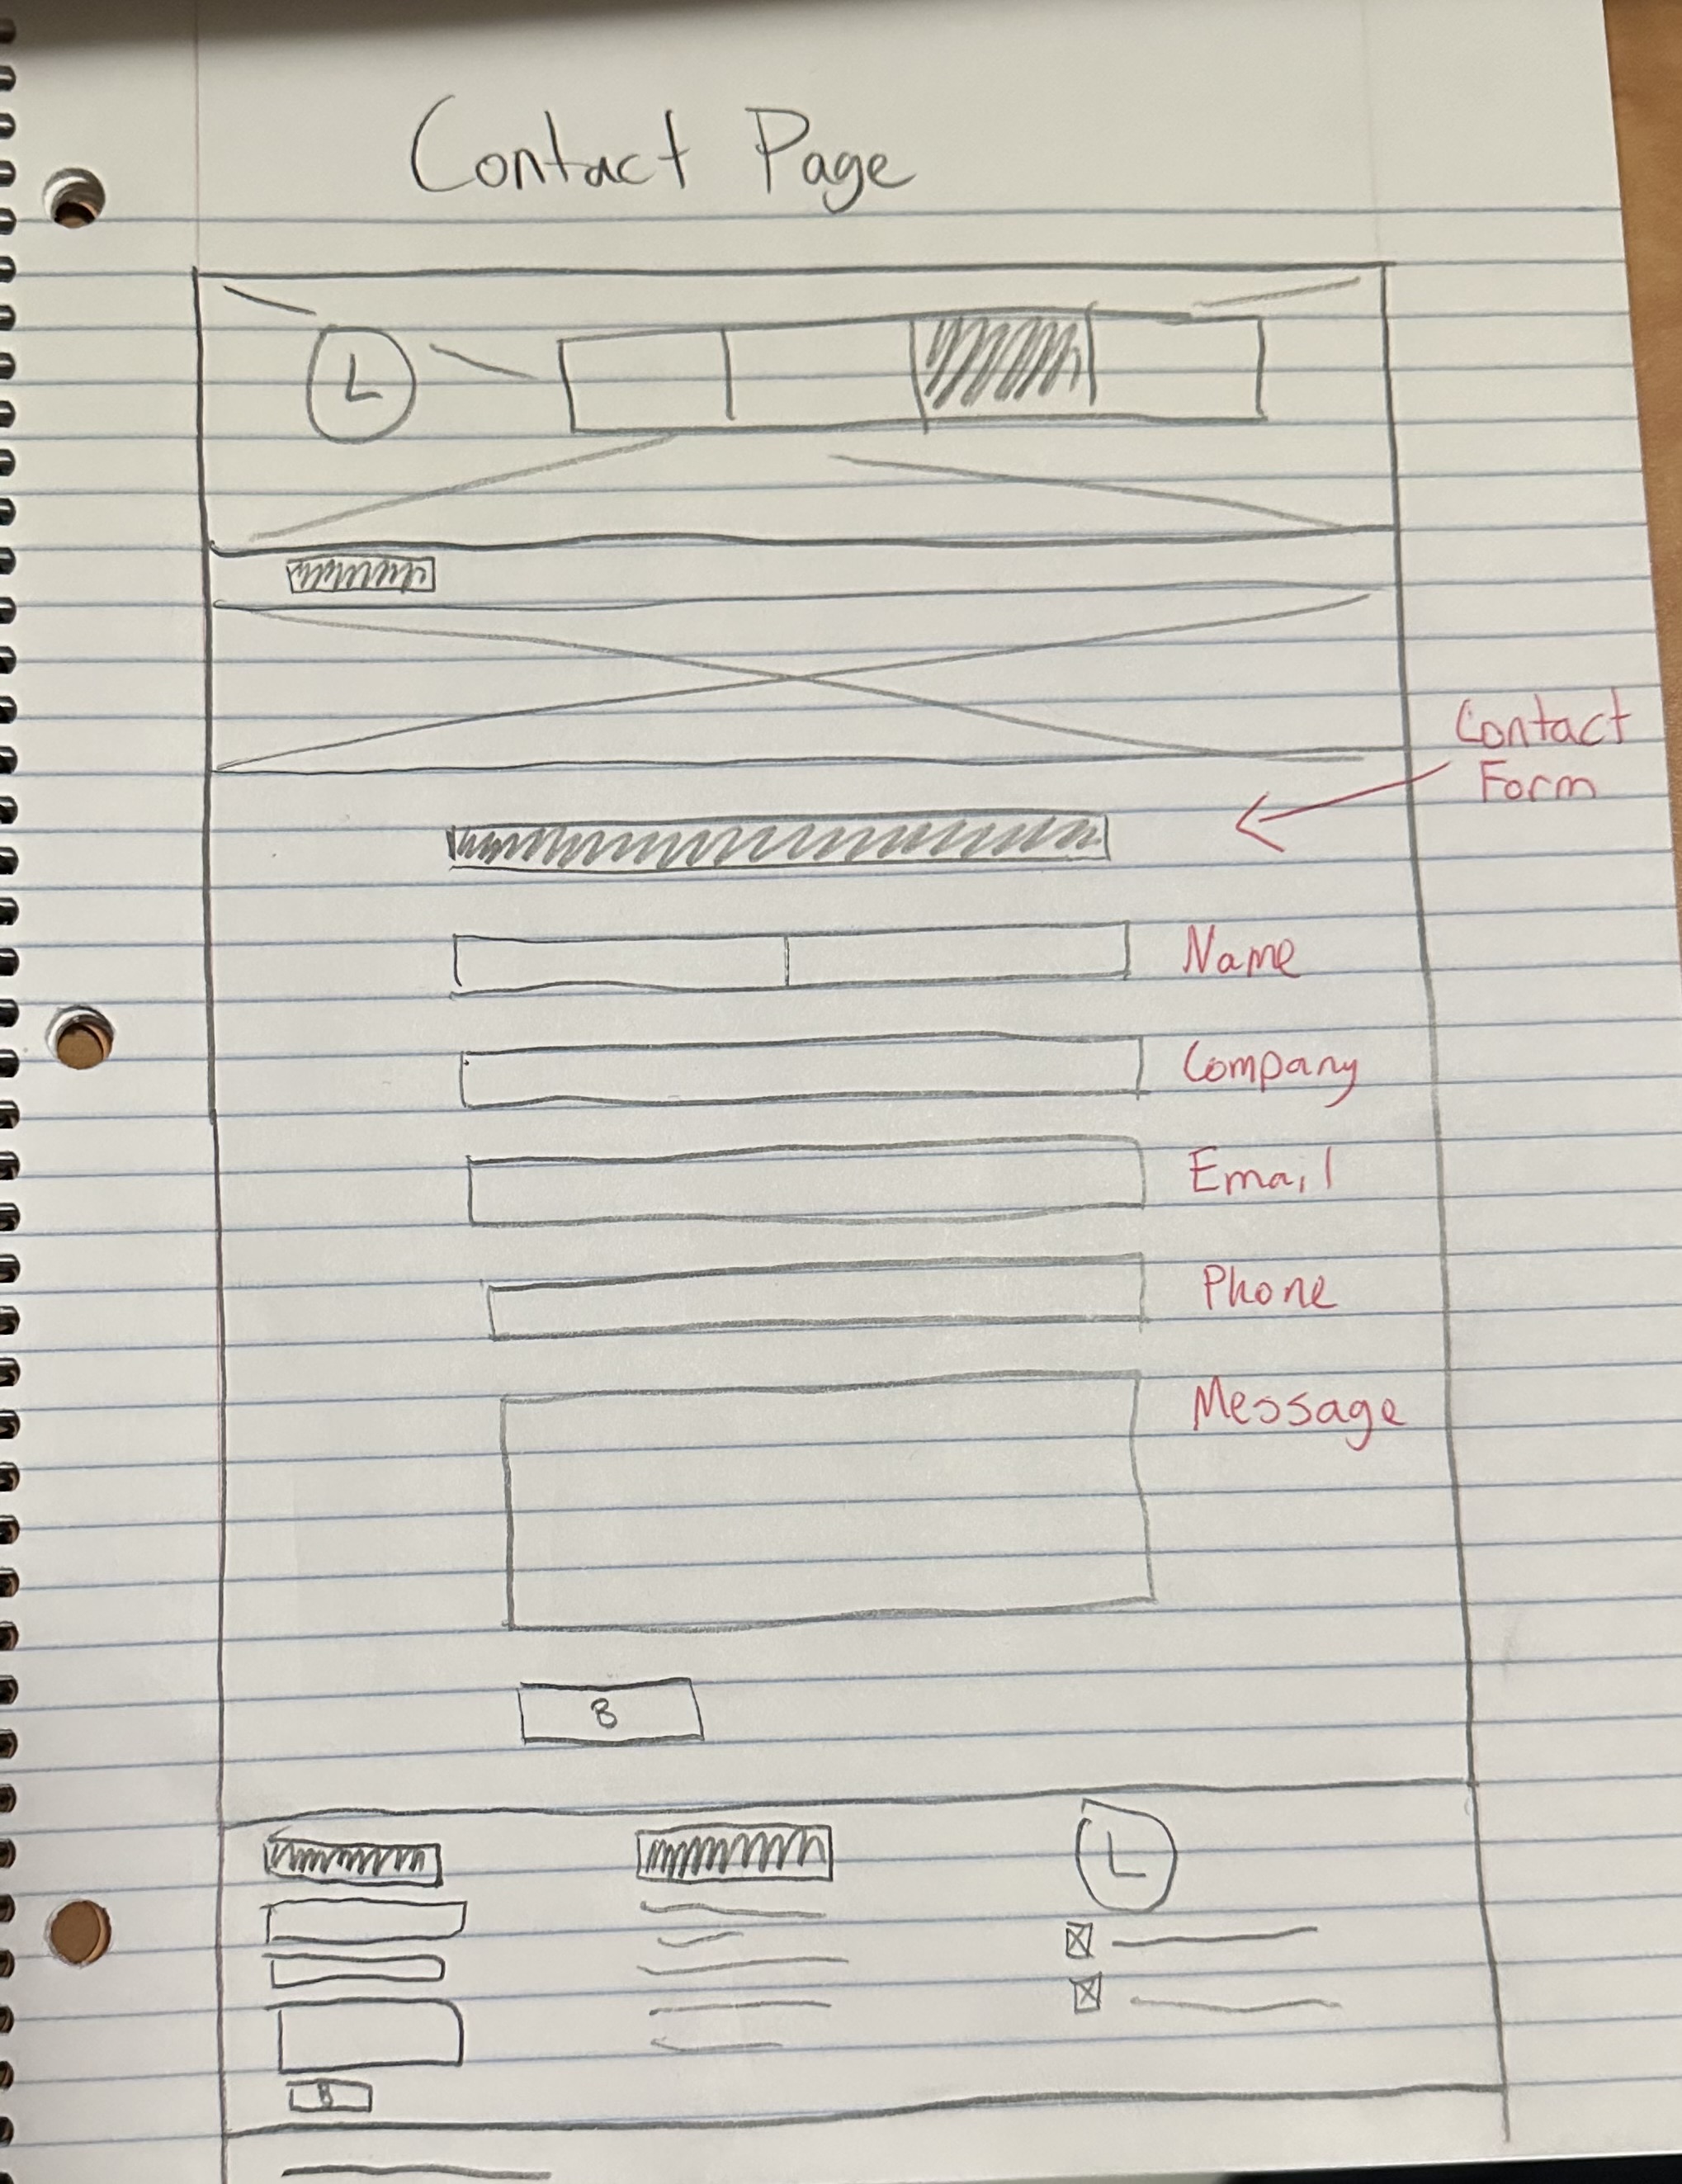 Contact Page
L
Contact
Form
Name
Company
Email
Phone
Message
B
L
B